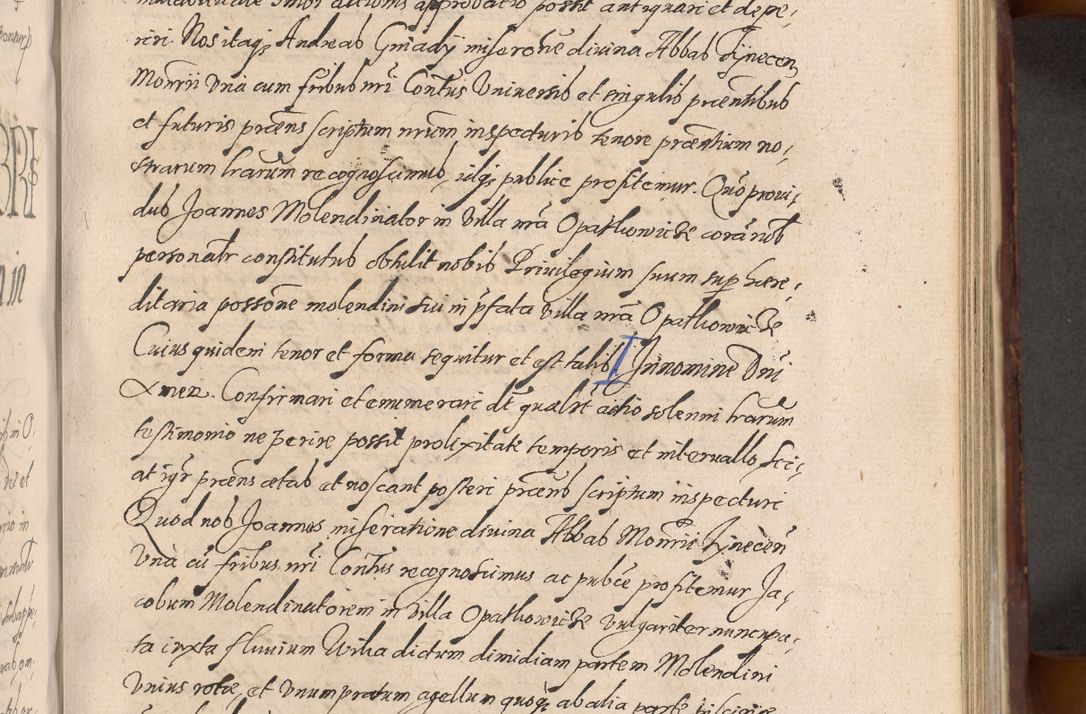 approbatio possit antiquari et depe,
riri. Nos itaq, Andreas Gniady miseratione divina Abbas Tynecen
Monrii Una cum fribus nri Contus Universis et singulis prcentibus
et futuris prcens scriptum nrum inspecturis tenore prcentium no,
strarum lrarum recognoscimus, idq, publice profitemur. Quo provi,
dus Joannes Molendinator in Villa nra Opatkowicze corā nob
personalr constitutus obtulit nobis Privilegium suum sup hære,
ditaria possone molendini sui in pfata Villa nra Opatkowicze
Cuius quidem tenor et forma sequitur et est talis I In nomine Dni
Amen. Confirmari et enumerari dt quælibt actio solenni lrarum
testimonio ne perire possit prolixitate temporis et intervallo, Sci,
at igr prcens ætas et noscant posteri prcens scriptum inspecturi
Quod nos Joannes miseratione divina Abbas Monrii Tynecen
Una cū fribus nri Contus recognoscimus ac pubce profitemur Ja,
cobum Molendinatorem in Villa Opatkowicze Vulgariter nuncupa,
ta iuxta fluvium Wilia dictum dimidiam partem Molendini
Unius rotæ, et Unum pratum agellum quoq, ab alia parte